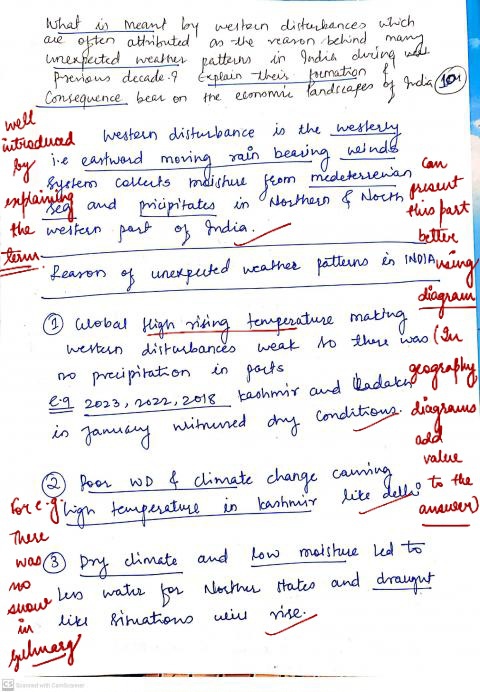 What is meant by western disturbances which
are often attributed as the reason behind many
unexpected weather patterns in India during
previous decade? Explain their formation &
Consequence bear on the economic landscapes of India
10M
well
introduced
by
explaining
the
term
Western disturbance is the westerly
i.e eastward moving rain bearing winds
System collects moisture from medeterrenian
sea and pricipitates in Northern & North
western part of India.
can
present
this part
better
using
diagram
(In
geography
diagrams
add
value
to the
answer)
Reason of unexpected weather patterns in INDIA
① Global High rising temperature making
western disturbances weak so there was
no precipitation in parts
e.g 2023, 2022, 2018 Kashmir and Ladakh
in January witnessed dry conditions.
② Poor WD & climate change causing
high temperature in Kashmir like delhi
③ Dry climate and low moisture led to
less water for Northern States and draught
like situations will rise.
For e.g.
There
was
no
snow
in
gulmarg
CS Scanned with CamScanner